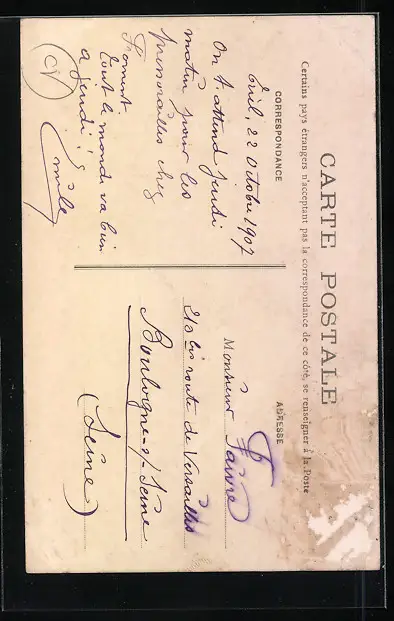 CARTE POSTALE
Certains pays étrangers n'acceptant pas la correspondance de ce côté, se renseigner à la Poste
CORRESPONDANCE
Creil, 22 Octobre 1907
On t'attend jeudi
matin pour les
chez
Froment.
Tout le monde va bien
a jeudi!
Emile
CV
ADRESSE
Monsieur Faivre
213 bis route de Versailles
Boulogne-s/-Seine
(Seine)